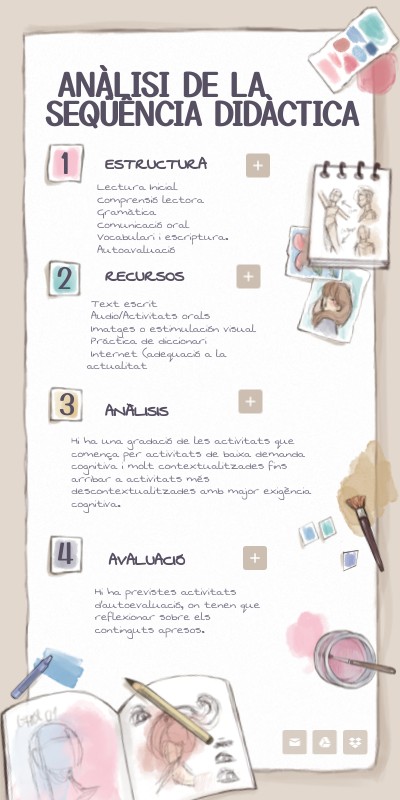 ANÀLISI DE LA
SEQÜÈNCIA DIDÀCTICA
1 ESTRUCTURA +
Lectura Inicial
Comprensió lectora
Gramàtica
Comunicació oral
Vocabulari i escriptura.
Autoavaluació
2 RECURSOS +
Text escrit
Àudio/Activitats orals
Imatges o estimulación visual
Pràctica de diccionari
Internet (adequació a la
actualitat
3 ANÀLISIS +
Hi ha una gradació de les activitats que
comença per activitats de baixa demanda
cognitiva i molt contextualitzades fins
arribar a activitats més
descontextualitzades amb major exigència
cognitiva.
4 AVALUACIÓ +
Hi ha previstes activitats
d'autoevaluació, on tenen que
reflexionar sobre els
continguts apresos.